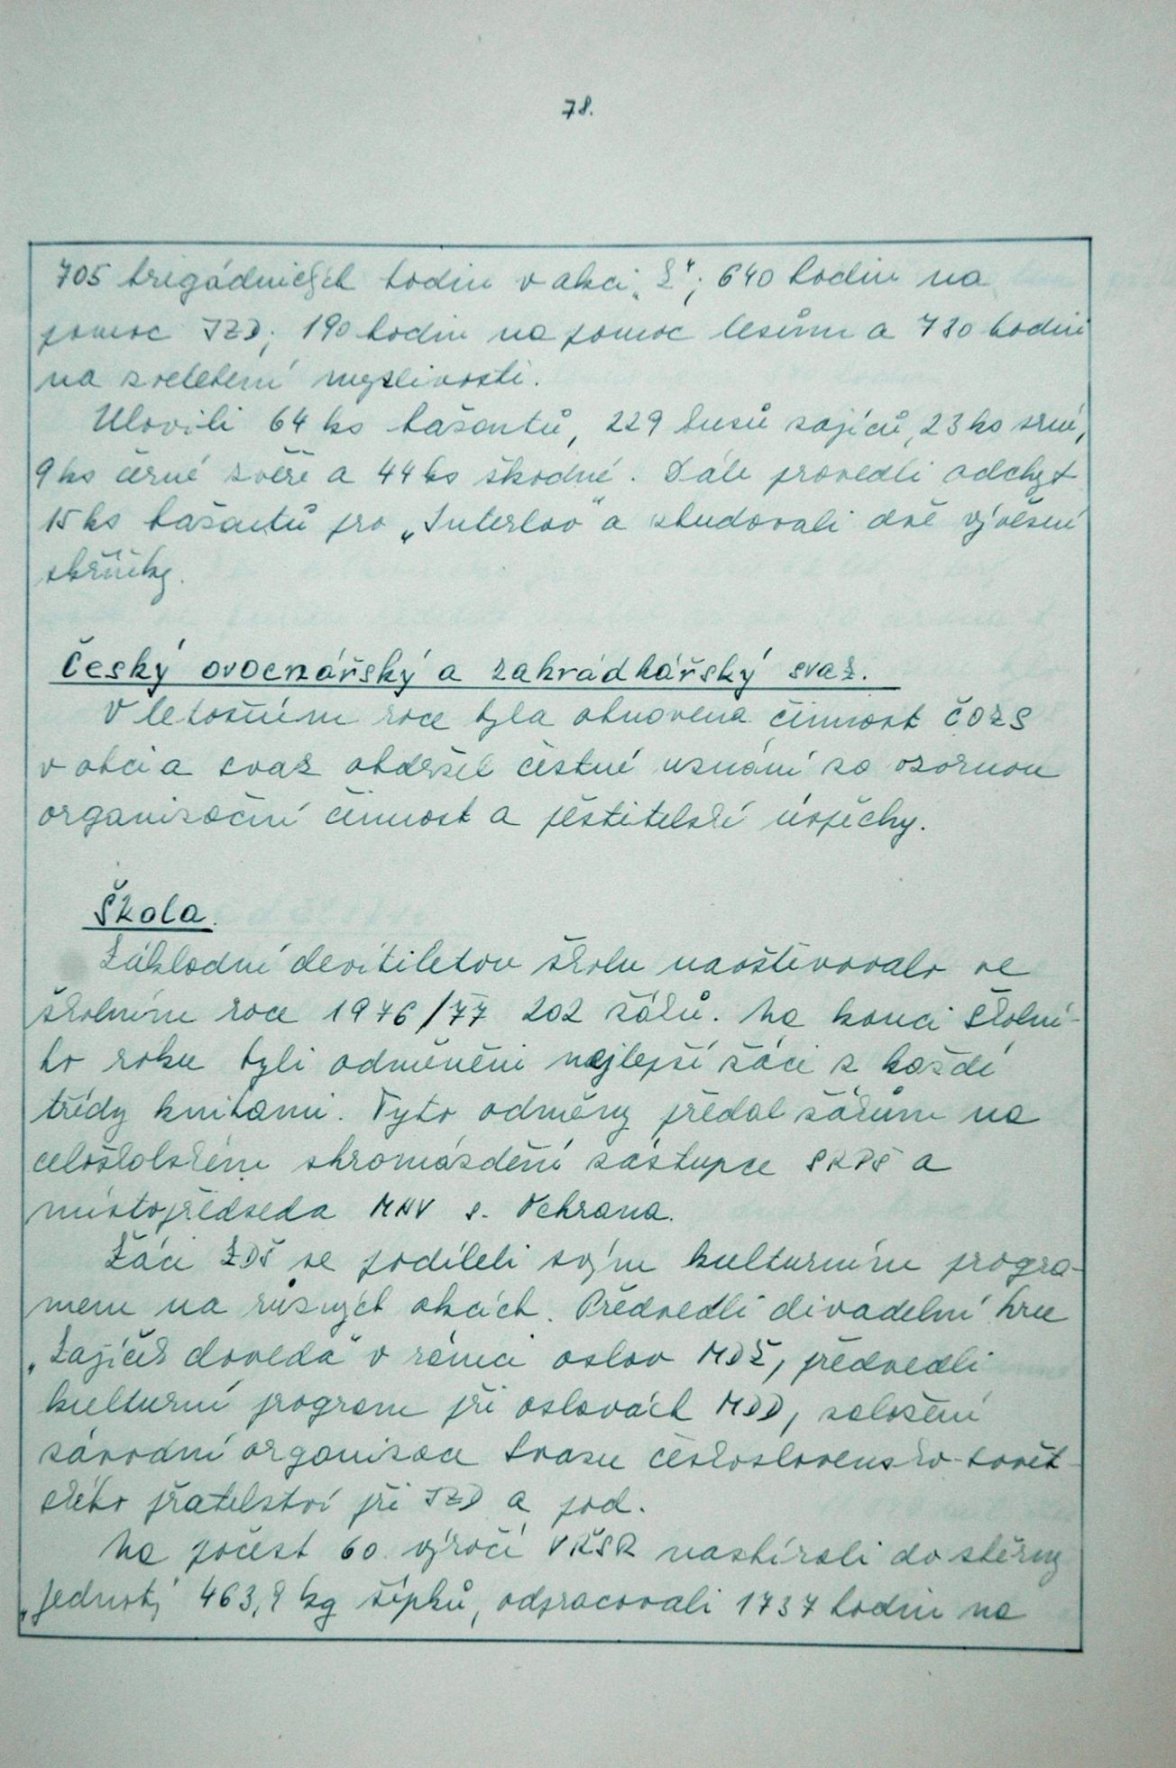 78.
705 brigádnických hodin v akci „Z“; 640 hodin na
pomoc JZD; 190 hodin na pomoc lesům a 780 hodin
na zvelebení myslivosti.
Ulovili 64 ks bažantů, 229 kusů zajíců, 23 ks srní,
9 ks černé zvěře a 44 ks škodné. Dále provedli odchyt
15 ks bažantů pro „Interlov“ a zbudovali dvě vývěsní
skříňky.
Český ovocnářský a zahrádkářský svaz.
V letošním roce byla obnovena činnost ČOZS
v obci a svaz obdržel čestné uznání za vzornou
organisační činnost a pěstitelské úspěchy.
Škola.
Základní devítiletou školu navštěvovalo ve
školním roce 1976/77 202 žáků. Na konci školní-
ho roku byli odměněni nejlepší žáci z každé
třídy knihami. Tyto odměny předal žákům na
celoškolském shromáždění zástupce SRPŠ a
místopředseda MNV s. Ochrana.
Žáci ZDŠ se podíleli svým kulturním progra-
mem na různých akcích. Předvedli divadelní hru
„Zajíček doveda“ v rámci oslav MDŽ, předvedli
kulturní program při oslavách MDD, založení
závodní organisace Svazu československo-sovět-
ského přátelství při JZD a pod.
Na počest 60. výročí VŘSR nasbírali do sběrny
„Jednoty“ 463,8 kg šípků, odpracovali 1737 hodin na